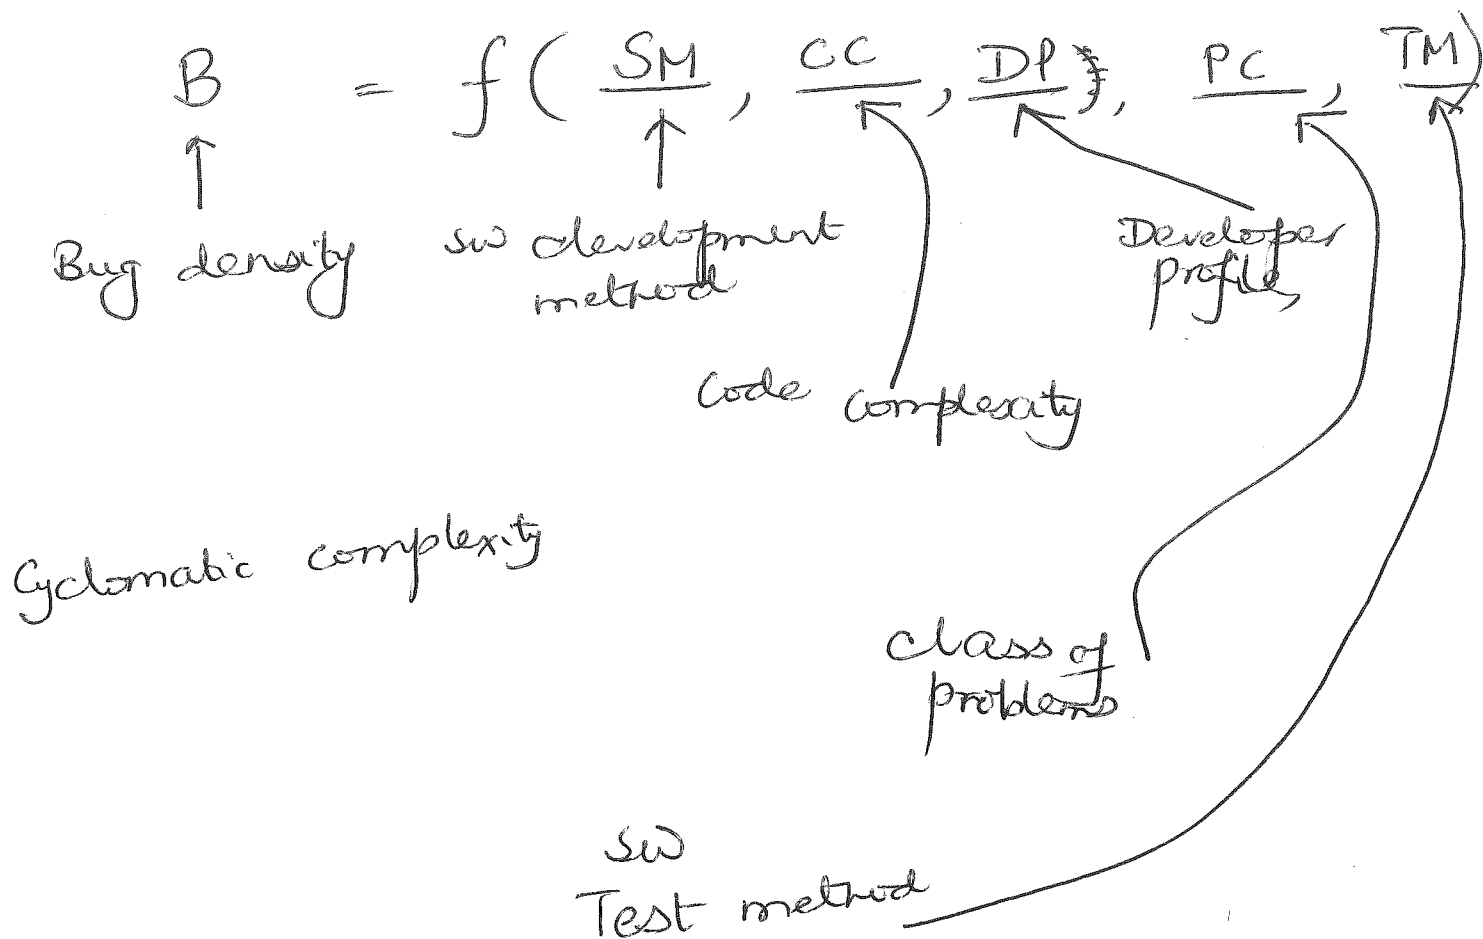 B = f ( SM , CC , DP , PC , TM )
Bug density
sw development
method
Developer
profile,
Code complexity
Cyclomatic complexity
Class of
problems
SW
Test method